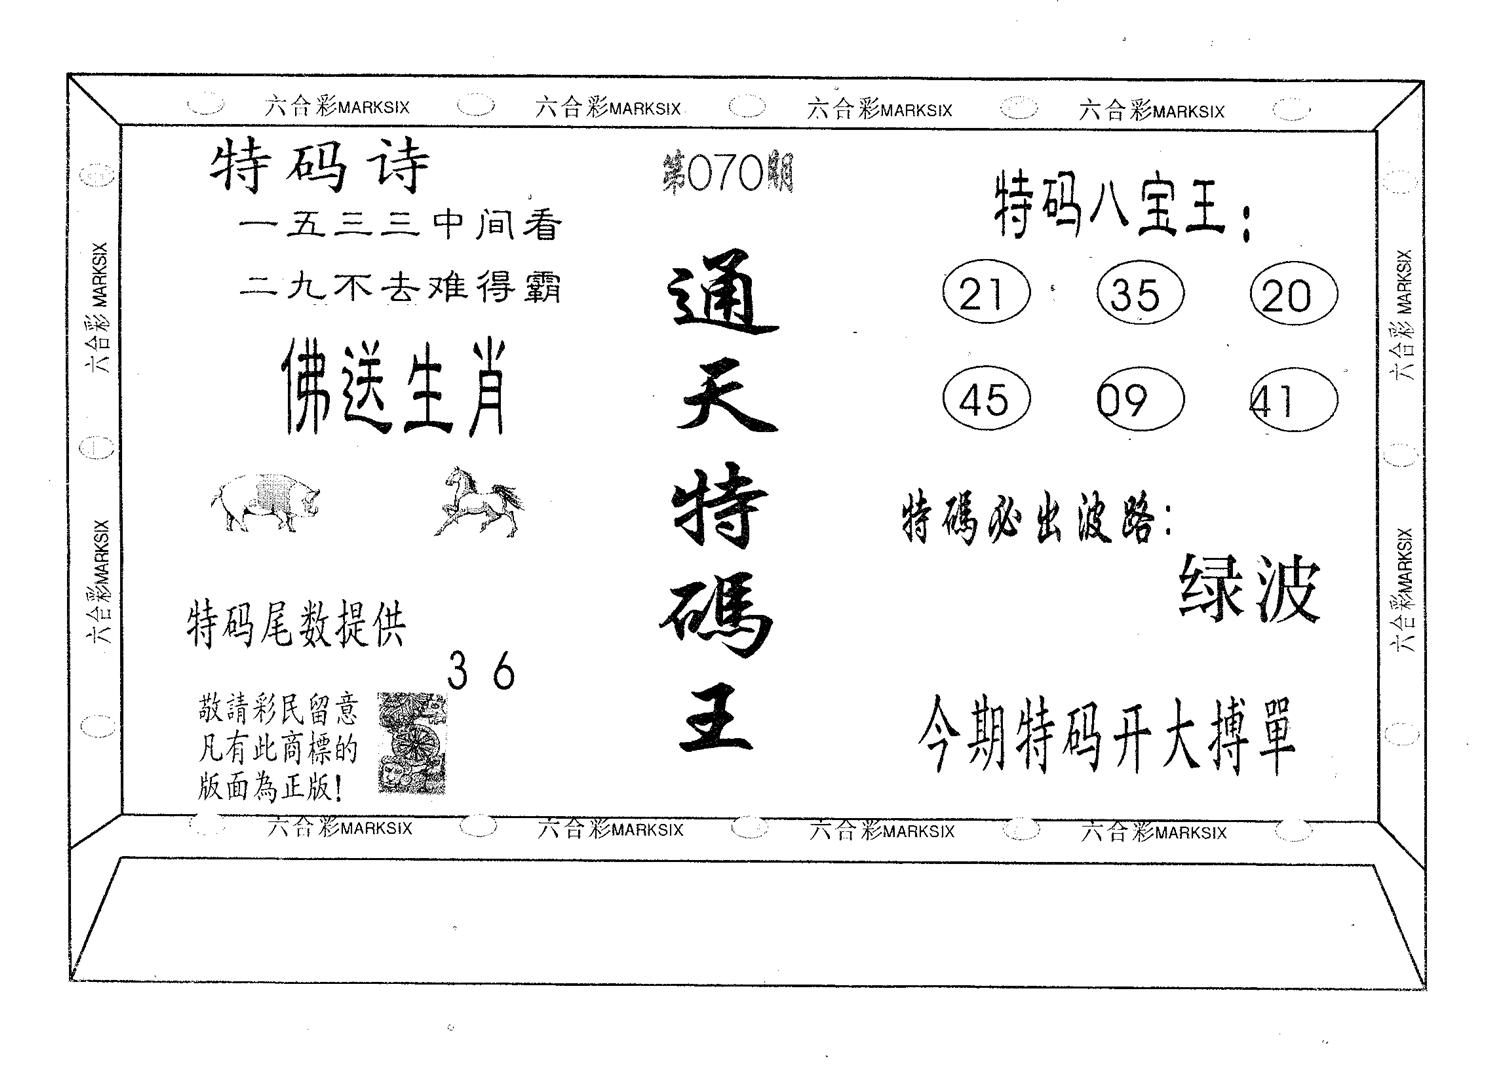 六合彩MARKSIX 六合彩MARKSIX 六合彩MARKSIX 六合彩MARKSIX
特码诗
一五三三中间看
二九不去难得霸
佛送生肖
特码尾数提供
3 6
敬請彩民留意
凡有此商標的
版面為正版!
第070期
通天特碼王
特码八宝王:
21 35 20
45 09 41
特碼必出波路:
绿波
今期特码开大搏單
六合彩MARKSIX
六合彩MARKSIX
六合彩MARKSIX
六合彩MARKSIX
六合彩MARKSIX 六合彩MARKSIX 六合彩MARKSIX 六合彩MARKSIX